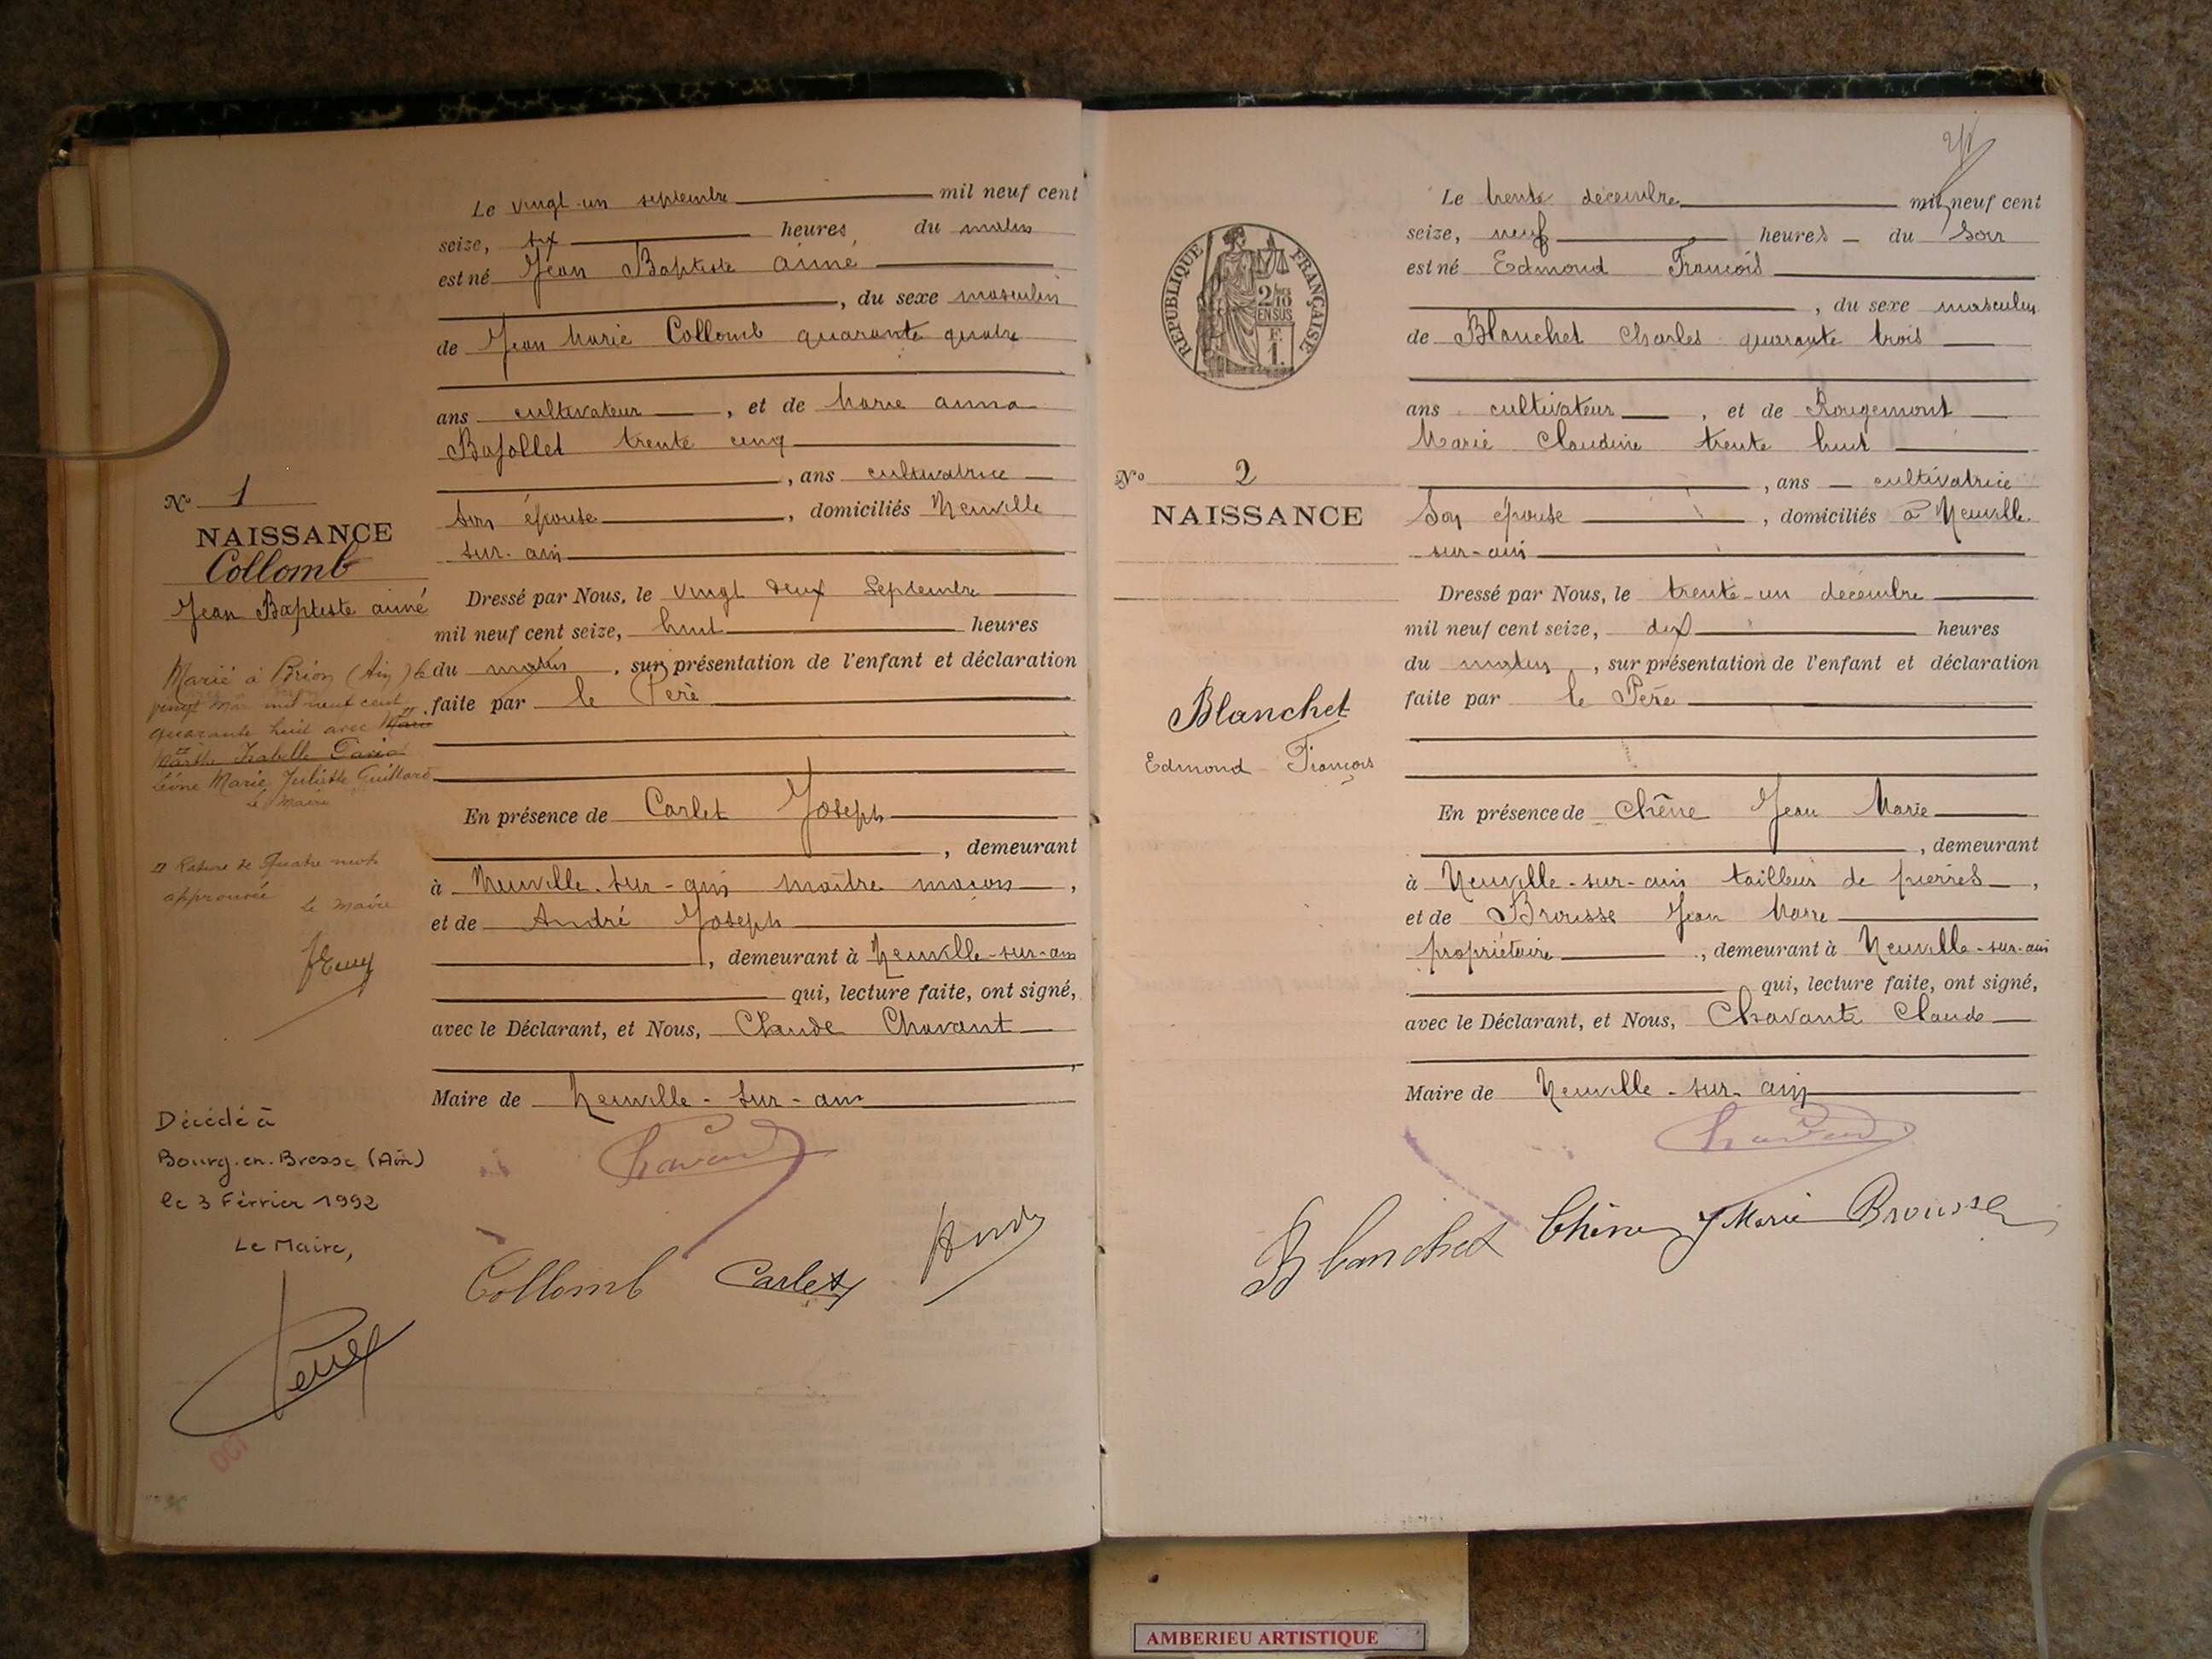 Nº 1
NAISSANCE
Collomb
Jean Baptiste aimé
Marié à Brion (Ain) le
vingt mai mil neuf cent
quarante huit avec Marie
Marthe Isabelle
Léone Marie Juliette Guillard
Le Maire
Rature de Quatre mots
approuvée
Le Maire
Décédé à
Bourg-en-Bresse (Ain)
le 3 Février 1992
Le Maire,
Le vingt-un septembre mil neuf cent
seize, six heures du matin
est né Jean Baptiste aimé
, du sexe masculin
de Jean Marie Collomb quarante quatre
ans cultivateur, et de Marie anna
Bajollet trente cinq
, ans cultivatrice
son épouse, domiciliés Neuville
sur-ain
Dressé par Nous, le vingt deux Septembre
mil neuf cent seize, huit heures
du matin, sur présentation de l'enfant et déclaration
faite par le Père
En présence de Carlet Joseph
, demeurant
à Neuville-sur-ain maître maçon,
et de André Joseph
, demeurant à Neuville-sur-ain
qui, lecture faite, ont signé,
avec le Déclarant, et Nous, Claude Chavant
,
Maire de Neuville-sur-ain
Chavant
Collomb Carlet André
REPUBLIQUE FRANÇAISE
2/10
EN SUS
F.
1.
Nº 2
NAISSANCE
Blanchet
Edmond François
Le trente décembre mil neuf cent
seize, neuf heures - du soir
est né Edmond François
, du sexe masculin
de Blanchet Charles quarante trois
ans cultivateur, et de Rougemont
Marie Claudine trente huit
, ans - cultivatrice
Son épouse, domiciliés à Neuville
-sur-ain
Dressé par Nous, le trente-un décembre
mil neuf cent seize, dix heures
du matin, sur présentation de l'enfant et déclaration
faite par le Père
En présence de Chêne Jean Marie
, demeurant
à Neuville-sur-ain tailleur de pierres,
et de Brousse Jean Marie
propriétaire, demeurant à Neuville-sur-ain
qui, lecture faite, ont signé,
avec le Déclarant, et Nous, Chavante Claude
Maire de Neuville-sur-ain
Chavant
Blanchet Chêne J Marie Brousse
AMBERIEU ARTISTIQUE